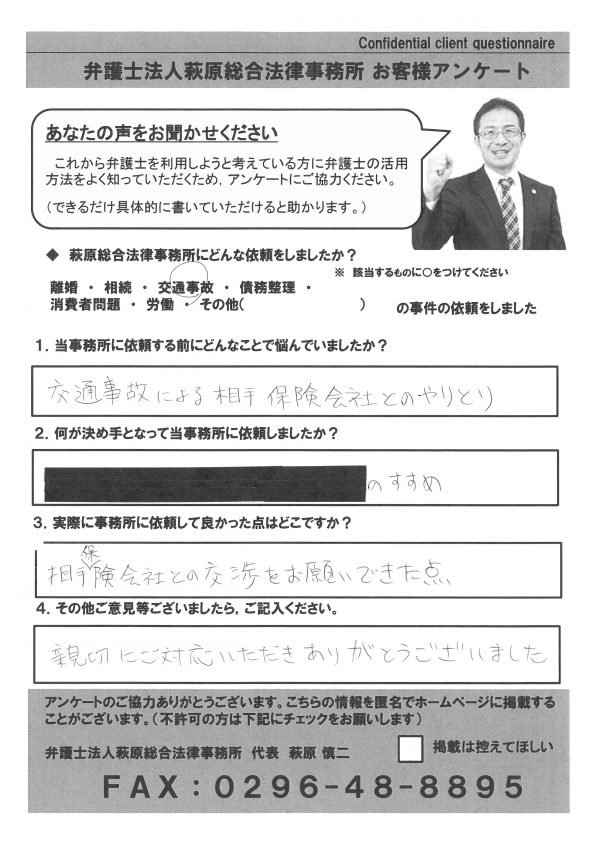 Confidential client questionnaire
弁護士法人萩原総合法律事務所 お客様アンケート
あなたの声をお聞かせください
これから弁護士を利用しようと考えている方に弁護士の活用
方法をよく知っていただくため，アンケートにご協力ください。
（できるだけ具体的に書いていただけると助かります。）
◆ 萩原総合法律事務所にどんな依頼をしましたか？
※ 該当するものに○をつけてください
離婚 ・ 相続 ・ 交通事故 ・ 債務整理 ・
消費者問題 ・ 労働 ・ その他( ) の事件の依頼をしました
１．当事務所に依頼する前にどんなことで悩んでいましたか？
交通事故による相手保険会社とのやりとり
２．何が決め手となって当事務所に依頼しましたか？
のすすめ
３．実際に事務所に依頼して良かった点はどこですか？
相手保険会社との交渉をお願いできた点
４．その他ご意見等ございましたら，ご記入ください。
親切にご対応いただきありがとうございました
アンケートのご協力ありがとうございます。こちらの情報を匿名でホームページに掲載する
ことがございます。（不許可の方は下記にチェックをお願いします）
弁護士法人萩原総合法律事務所 代表 萩原 慎二
掲載は控えてほしい
ＦＡＸ：０２９６-４８-８８９５